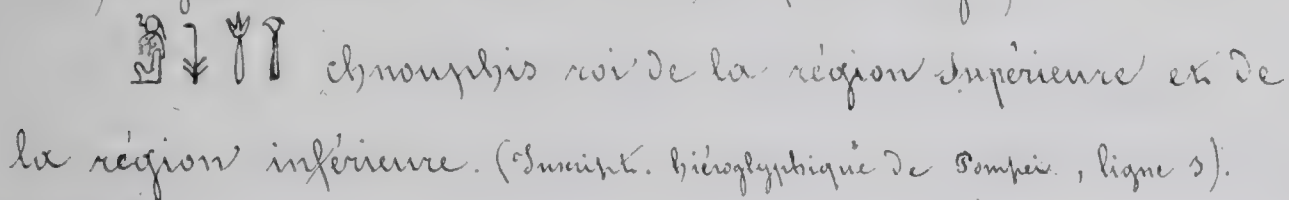 chnouphis roi de la région supérieure et de
la région inférieure. (Inscript. hiéroglyphique de Pompei, ligne 3).